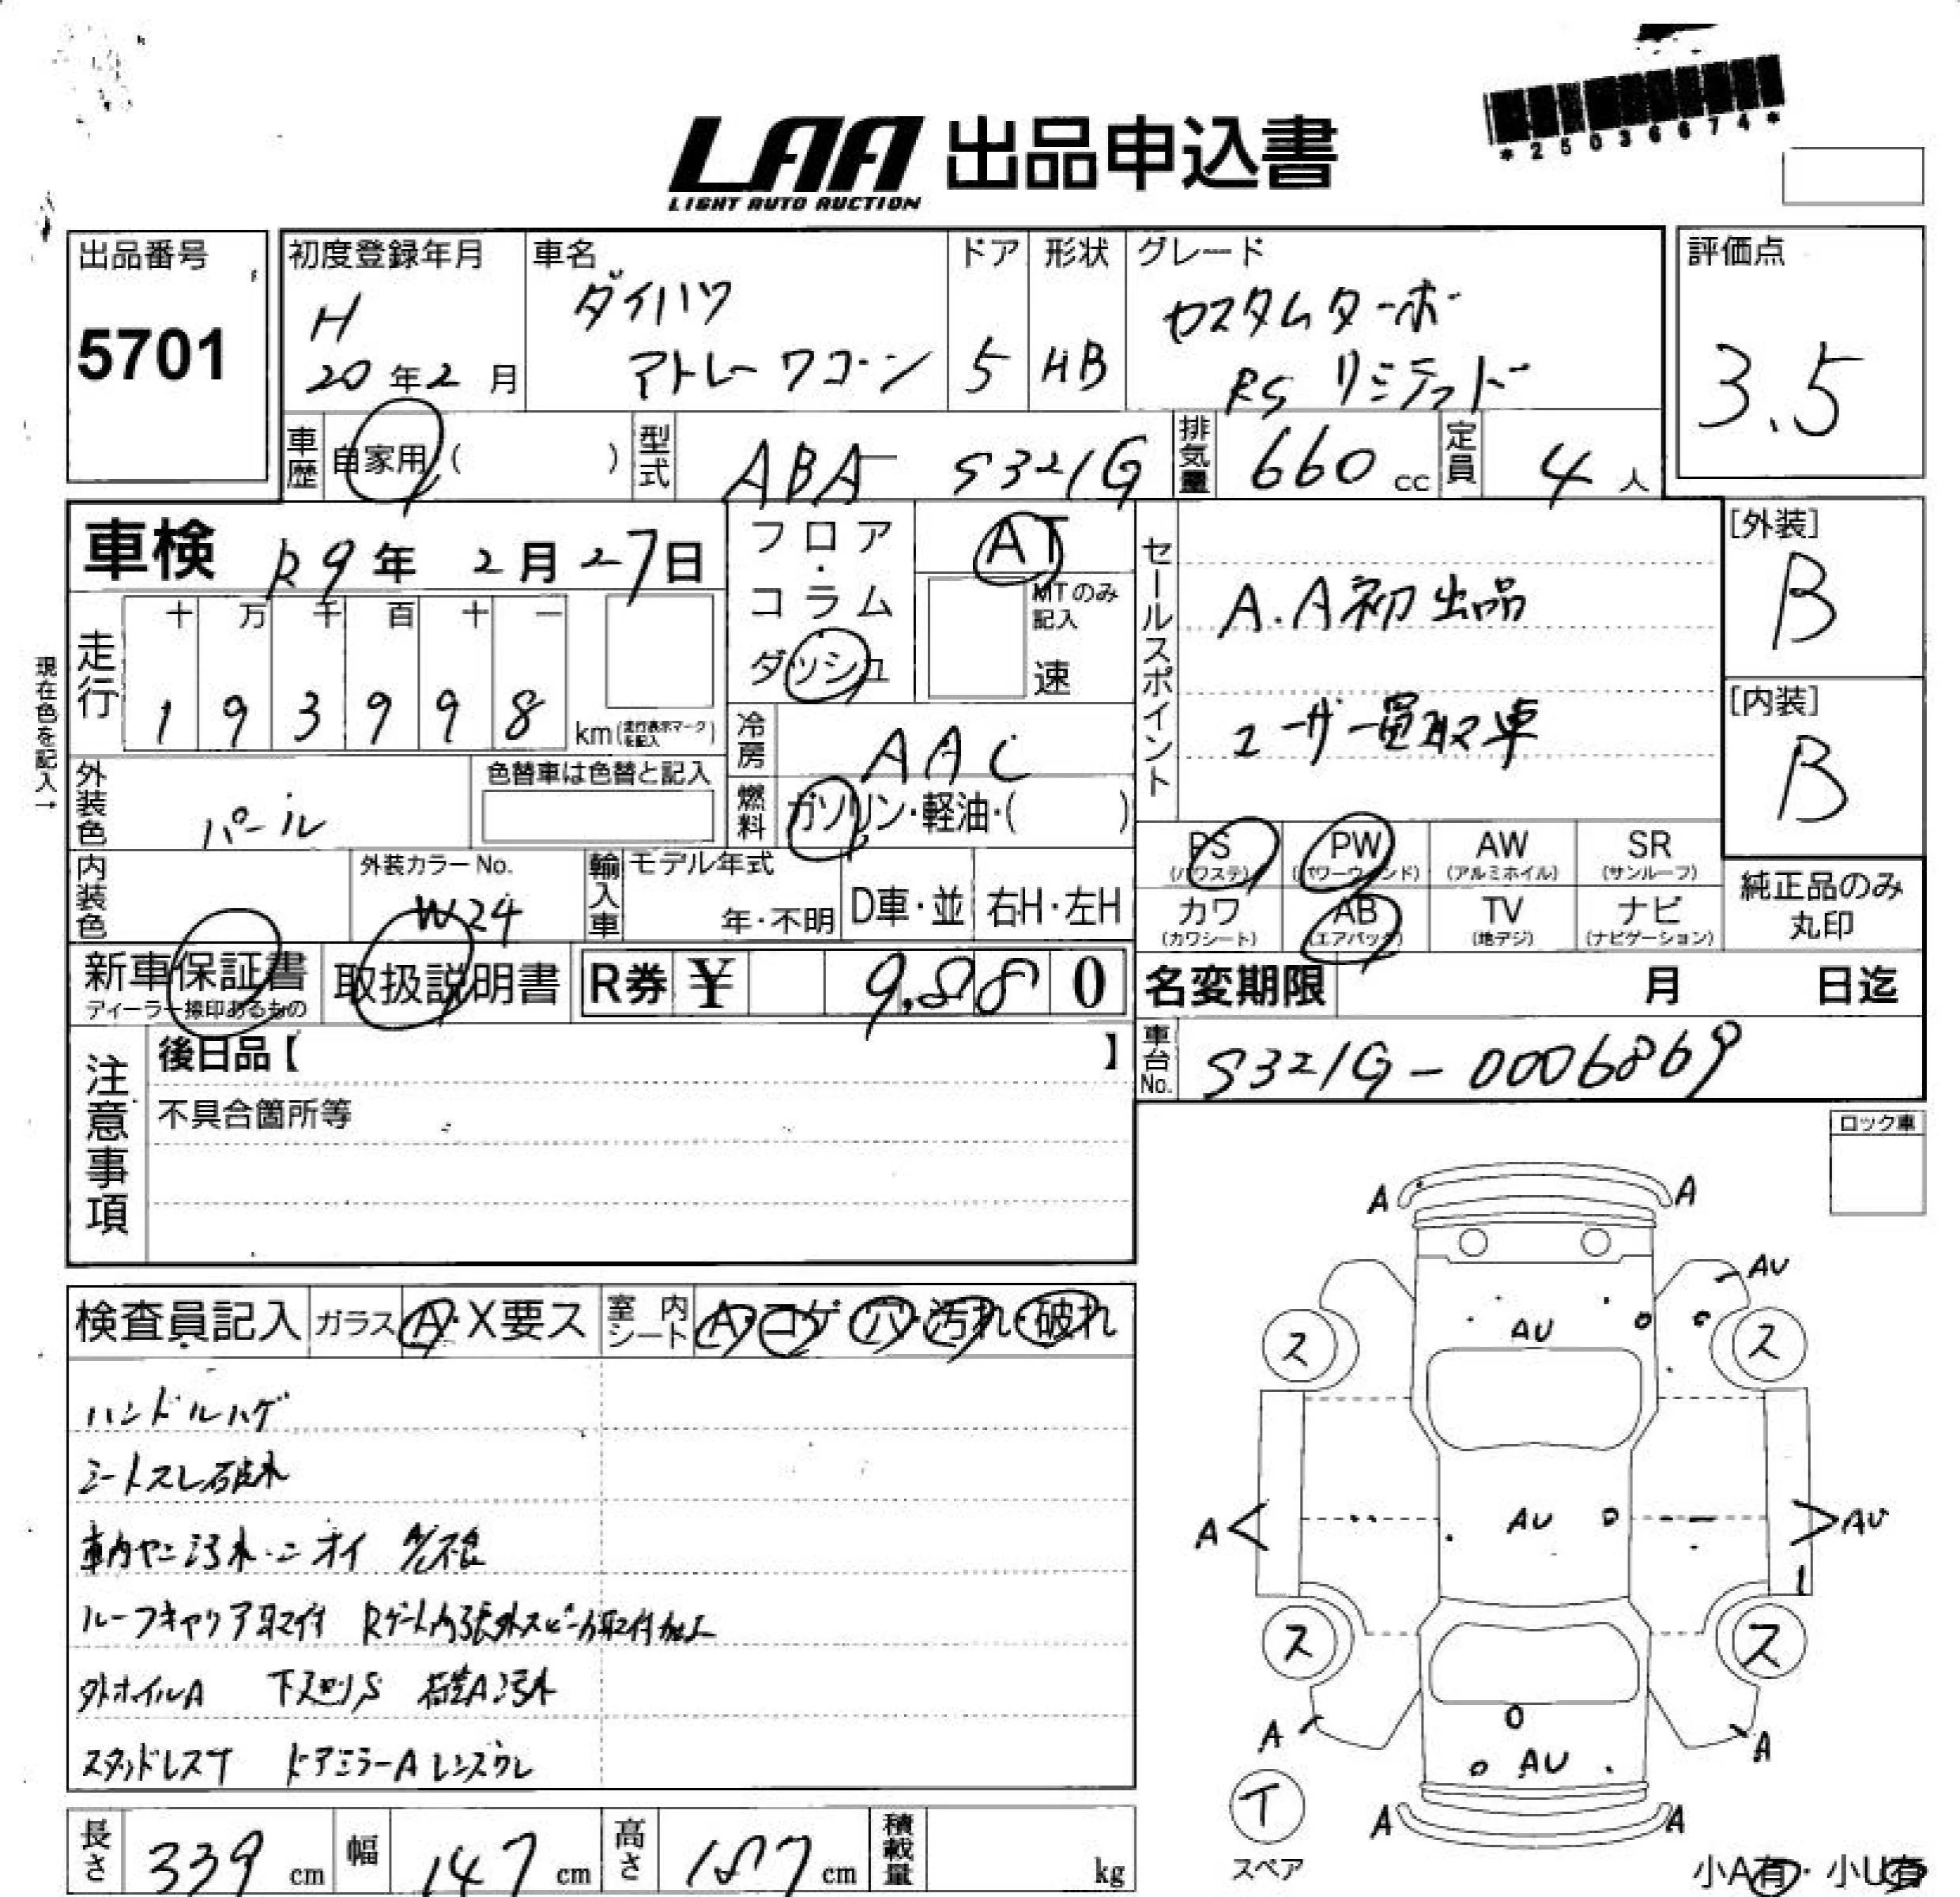 *25036674*
LAA 出品申込書
LIGHT AUTO AUCTION
出品番号
5701
初度登録年月
H
20年2月
車名
ダイハツ
アトレーワゴン
ドア
5
形状
HB
グレード
カスタムターボ
RS リミテッド
評価点
3.5
車歴
自家用( )
型式
ABA- S321G
排気量
660 cc
定員
4人
車検 R9年 2月27日
フロア・コラム
ダッシュ
AT
MTのみ記入
速
セールスポイント
A.A初出品
ユーザー買取車
[外装]
B
[内装]
B
現在色を記入→
走行
十 万 千 百 十 一
1 9 3 9 9 8 km(走行表示マークを記入)
冷房
AAC
燃料
ガソリン・軽油・( )
外装色
パール
色替車は色替と記入
内装色
外装カラーNo.
W24
輸入車
モデル年式
年・不明
D車・並
右H・左H
PS
(パワステ)
PW
(パワーウィンド)
AW
(アルミホイル)
SR
(サンルーフ)
カワ
(カワシート)
AB
(エアバッグ)
TV
(地デジ)
ナビ
(ナビゲーション)
純正品のみ
丸印
新車保証書
ディーラー捺印あるもの
取扱説明書
R券 ¥ 9,880
名変期限 月 日迄
車台No.
S321G-0006869
注意事項
後日品【 】
不具合箇所等
ロック車
検査員記入
ガラス A・X要ス
室内シート A・コゲ・穴・汚れ・破れ
ハンドルハゲ
シートスレ破れ
車内ヤニ汚れ・ニオイ
ルーフキャリア取付 Rゲート内張外スピーカ取付加工
外ホイルA 下廻りS 荷室A汚れ
スタッドレスT ドアミラーA レンズクレ
A A
AU
AU
ス ス
A AU AU
ス ス
A A
AU
T
スペア
A A
小A有・小U有
長さ
339 cm
幅
147 cm
高さ
187 cm
積載量
kg